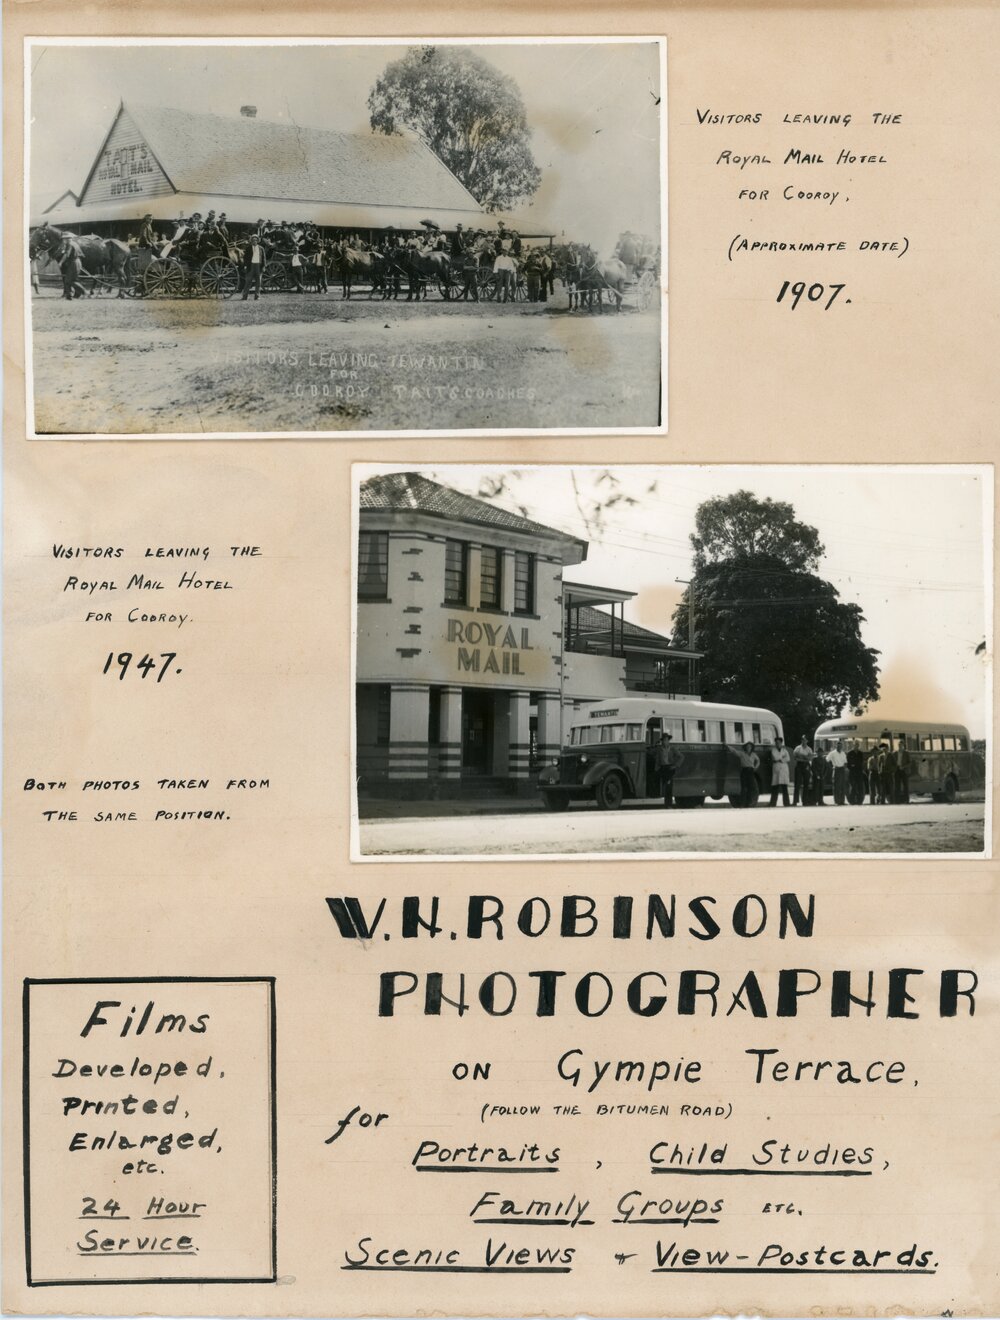 TAIT'S
ROYAL MAIL
HOTEL.
VISITORS LEAVING TEWANTIN
FOR
COOROY TAIT'S COACHES
VISITORS LEAVING THE
ROYAL MAIL HOTEL
FOR COOROY,
(APPROXIMATE DATE)
1907.
VISITORS LEAVING THE
ROYAL MAIL HOTEL
FOR COOROY.
1947.
BOTH PHOTOS TAKEN FROM
THE SAME POSITION.
ROYAL
MAIL
W.H. ROBINSON
PHOTOGRAPHER
ON Gympie Terrace,
(FOLLOW THE BITUMEN ROAD)
for
Portraits, Child Studies,
Family Groups ETC.
Scenic Views + View-Postcards.
Films
Developed,
Printed,
Enlarged,
etc.
24 Hour
Service.